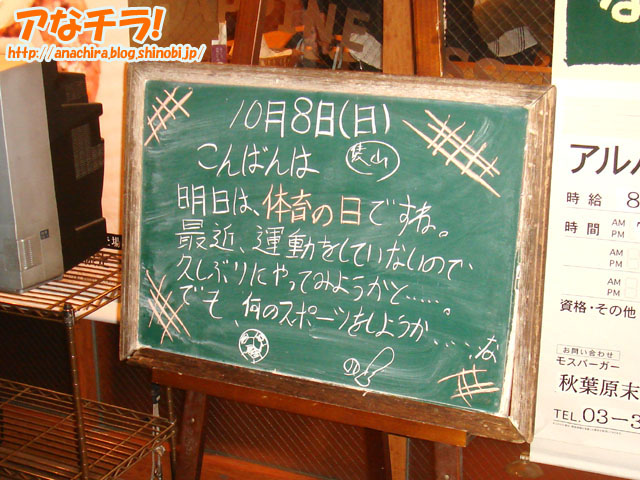 アなチラ!
http://anachira.blog.shinobi.jp/
10月8日(日)
こんばんは
明日は、体育の日ですね。
最近、運動をしていないので、
久しぶりにやってみようかと.....。
でも、何のスポーツをしようか....な
アル
時給 8
時間 AM PM 7
AM PM
AM PM
資格・その他
お問い合わせ
モスバーガー
秋葉原末
TEL.03-3